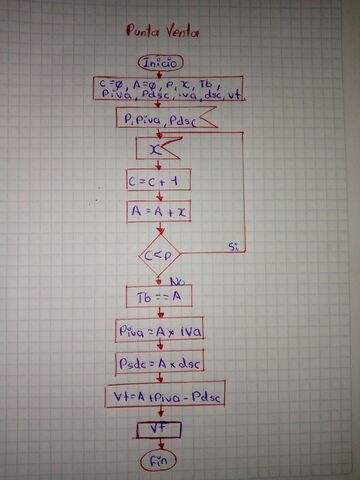 Punta Venta
Inicio
C=ø, A=ø, P, x, Tb,
Piva, Pdsc, iva, dsc, vt
P, Piva, Pdsc
x
C = C + 1
A = A + x
C < P
Si
No
Tb == A
Piva = A × iva
Psdc = A × dsc
Vt = A + Piva - Pdsc
Vt
Fin